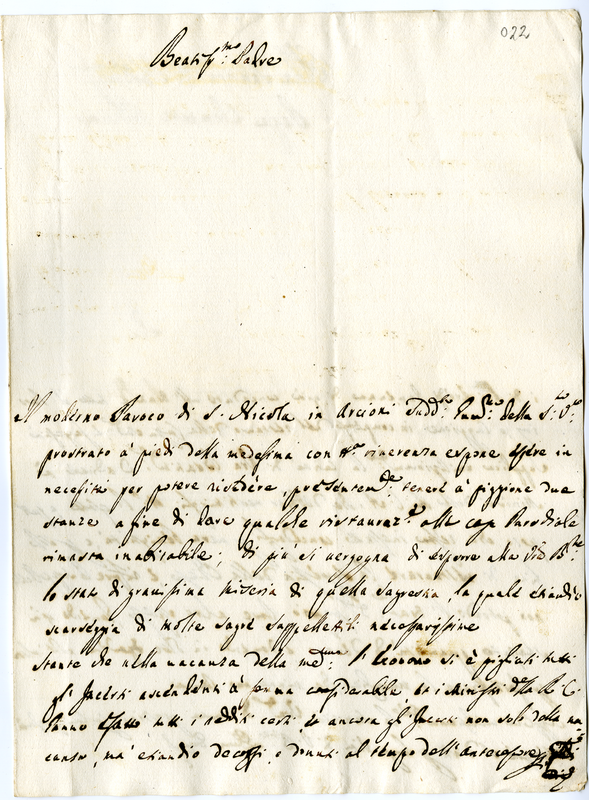 022
Beatiss.mo Padre
Il moderno Paroco di S. Nicola in Arcioni Sudd.to della S.tà V.ra
prostrato à piedi della medesima con riverenza espone essere in
necessità per potere risedére, presentem.te tenere à piggione due
stanze a fine di dare qualche ristauraz.e alla casa Parochiale
rimasta inabitabile; di più si vergogna di esporre alla
lo stato di gravissima miseria di quella Sagrestia, la quale eziandio
scarseggia di molte sagre suppellettili necessarissime
stante che nella vacanza della med.ma l'Economo si è pigliati tutti
gl'Incerti ascendenti à somma considerabile ed i Ministri della R. C.
hanno esatto tutti i redditi certi, ed ancora gl'Incerti non solo della va
canza, ma eziandio decorsi, e donuti al tempo dell'antecessore